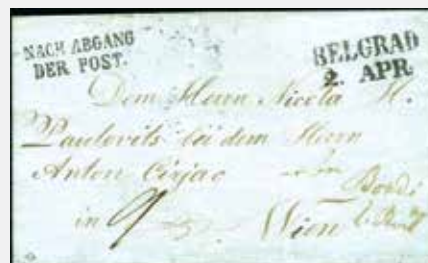 NACH ABGANG
DER POST.
BELGRAD
2. APR
Dem Herrn Nicola H.
Paulovits bei dem Herrn
Anton Cirjac
in Wien